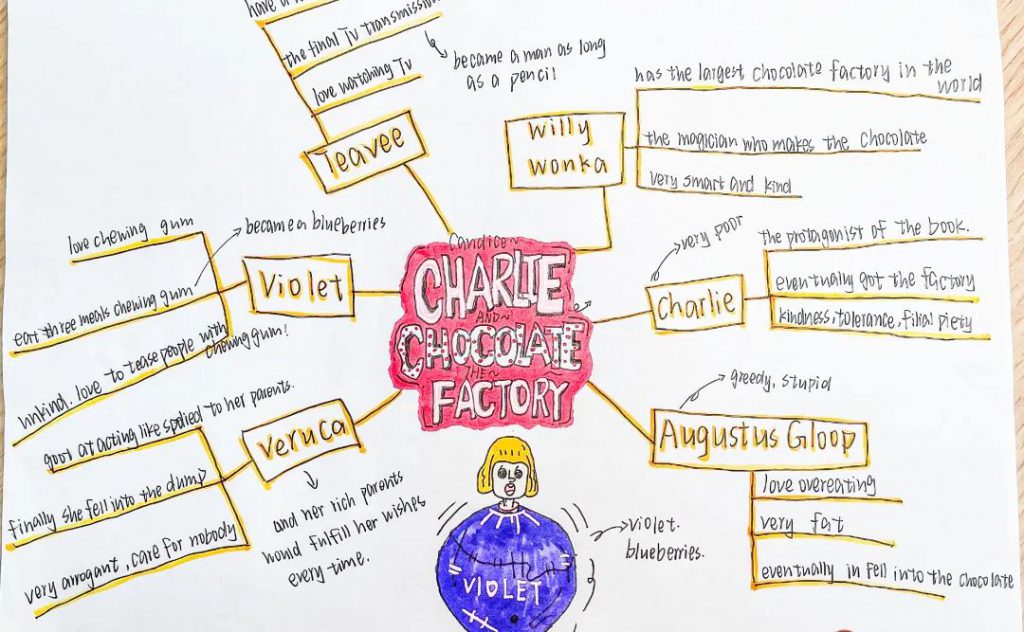 have a
the final Tv transmission
love watching Tv
became a man as long
as a pencil
Teavee
willy
wonka
has the largest chocolate factory in the
world
the magician who makes the chocolate
very smart and kind
love chewing gum
became a blueberries
eat three meals chewing gum
unkind. love to tease people with
chewing gum!
Violet
Candice~
CHARLIE
AND~
CHOCOLATE
~THE~
FACTORY
very poor
Charlie
the protagonist of the book.
eventually got the factory
kindness, tolerance, filial piety
greedy, stupid
Augustus Gloop
love overeating
very fat
eventually in fell into the chocolate
goot at acting like spolied to her parents.
veruca
finally she fell into the dump
very arrogant, care for nobody
and her rich parents
hould fulfill her wishes
every time.
violet.
blueberries.
VIOLET